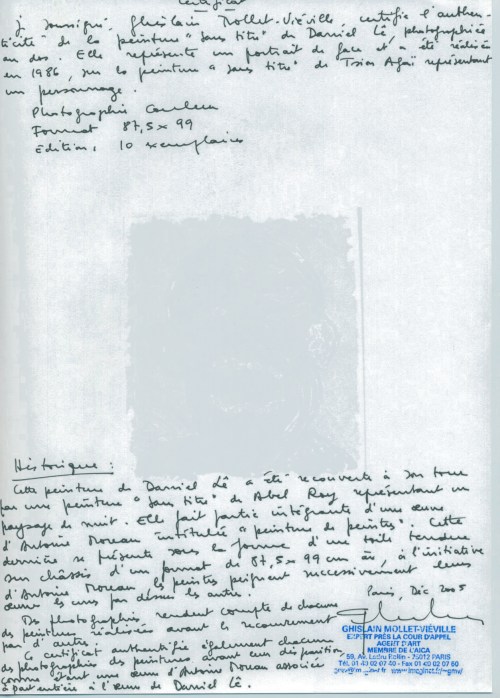 Certificat
je soussigné, Ghislain Mollet-Viéville, certifie l'authen-
ticité de la peinture "sans titre" de Daniel Lê, photographiée
au dos. Elle représente un portrait de face et a été réalisée
en 1986, sur la peinture "sans titre" de représentant
un personnage.
Photographie Couleur
Format 87,5 x 99
Edition : 10 exemplaires
Historique :
Cette peinture de Daniel Lê a été recouverte à son tour
par une peinture "sans titre" de Abel Rey représentant un
paysage de nuit. Elle fait partie intégrante d'une œuvre
d'Antoine Moreau intitulée "peinture de peintres". Cette
dernière se présente sous la forme d'une toile tendue
sur châssis d'un format de 87,5 x 99 cm où, à l'initiative
d'Antoine Moreau, les peintres peignent successivement leurs
œuvres les unes par dessus les autres.
Paris, Déc. 2005
Des photographies rendent compte de chacune
des peintures réalisées avant le recouvrement
par d'autres.
Ce certificat authentifie également chacune
des photographies des peintures avant leur disparition
comme étant une œuvre d'Antoine Moreau associée
à part entière à l'œuvre de Daniel Lê.
GHISLAIN MOLLET-VIÉVILLE
EXPERT PRÈS LA COUR D'APPEL
AGENT D'ART
MEMBRE DE L'AICA
59, Av. Ledru Rollin - 75012 PARIS
Tél. 01 43 02 07 40 - Fax 01 43 02 07 50